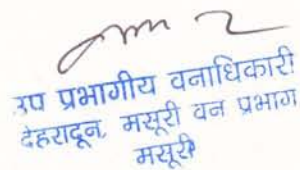 उप प्रभागीय वनाधिकारी
देहरादून, मसूरी वन प्रभाग
मसूरी